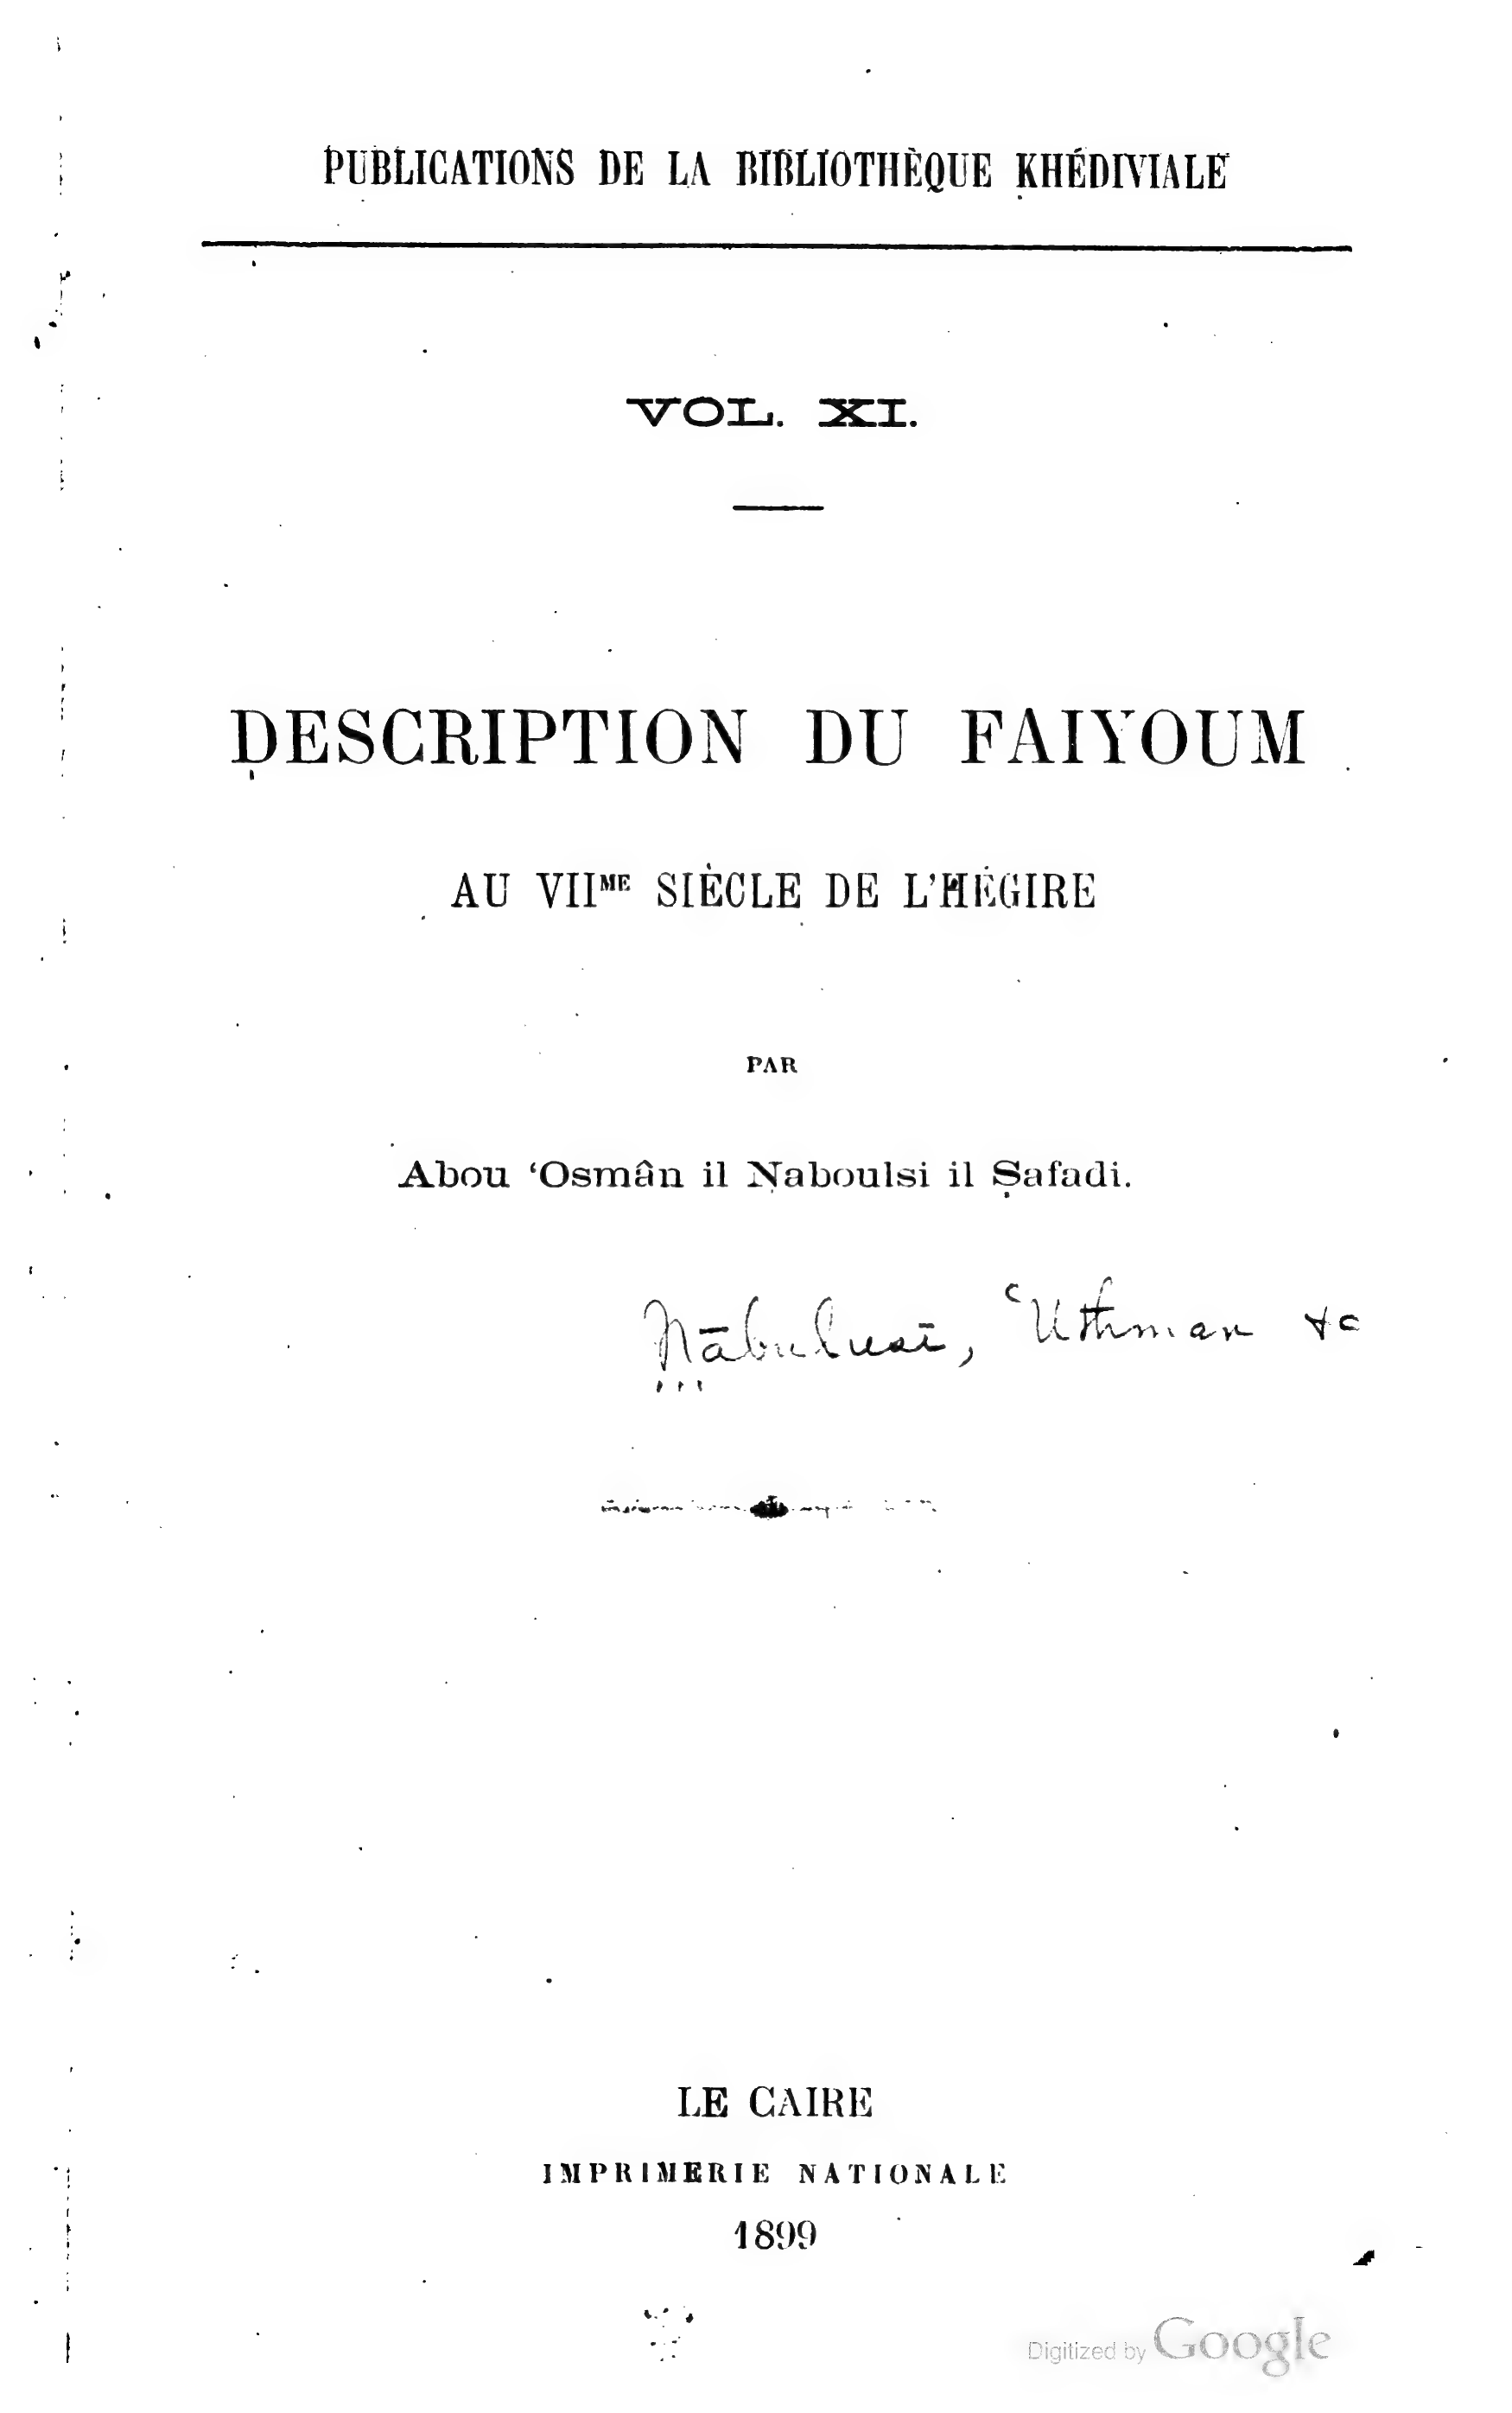 PUBLICATIONS DE LA BIBLIOTHÈQUE KHÉDIVIALE
VOL. XI.
DESCRIPTION DU FAIYOUM
AU VIIME SIÈCLE DE L'HÉGIRE
PAR
Abou ‘Osmân il Naboulsi il Ṣafadi.
Nābulusī, ‘Uthman &c
LE CAIRE
IMPRIMERIE NATIONALE
1899
Digitized by Google